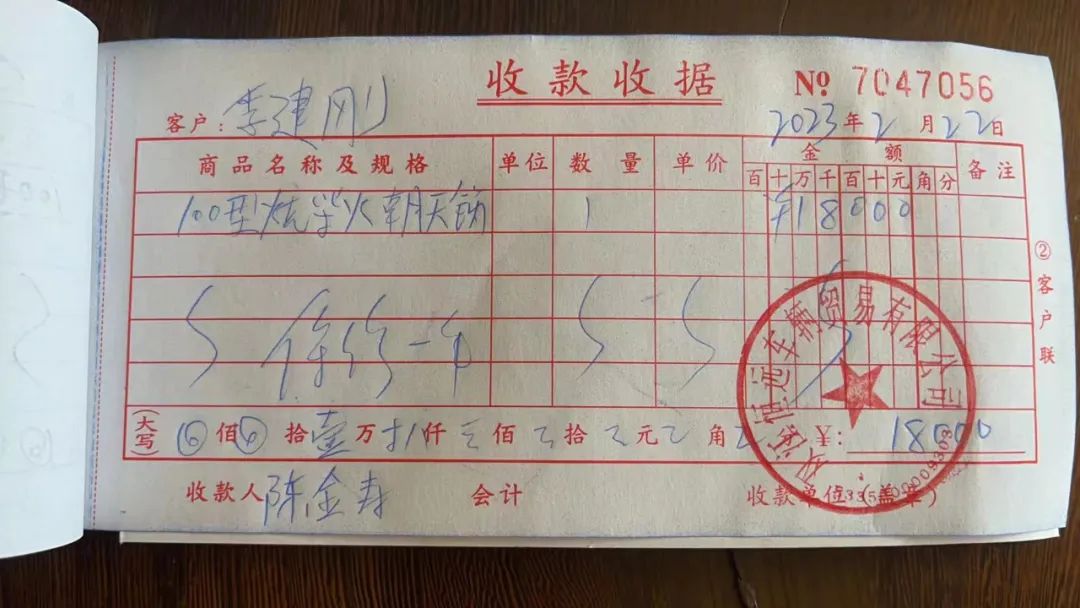 收款收据
№ 7047056
客户：李建刚
2023年2月22日
商品名称及规格 单位 数量 单价 金额 备注
百十万千百十元角分
100型 1 ¥18000
保修一年
②客户联
(大写) 佰 拾壹万 仟 佰 拾 元 角 ¥：18000
收款人 陈金寿 会计 收款单位（盖章）
恒远车辆贸易有限公司